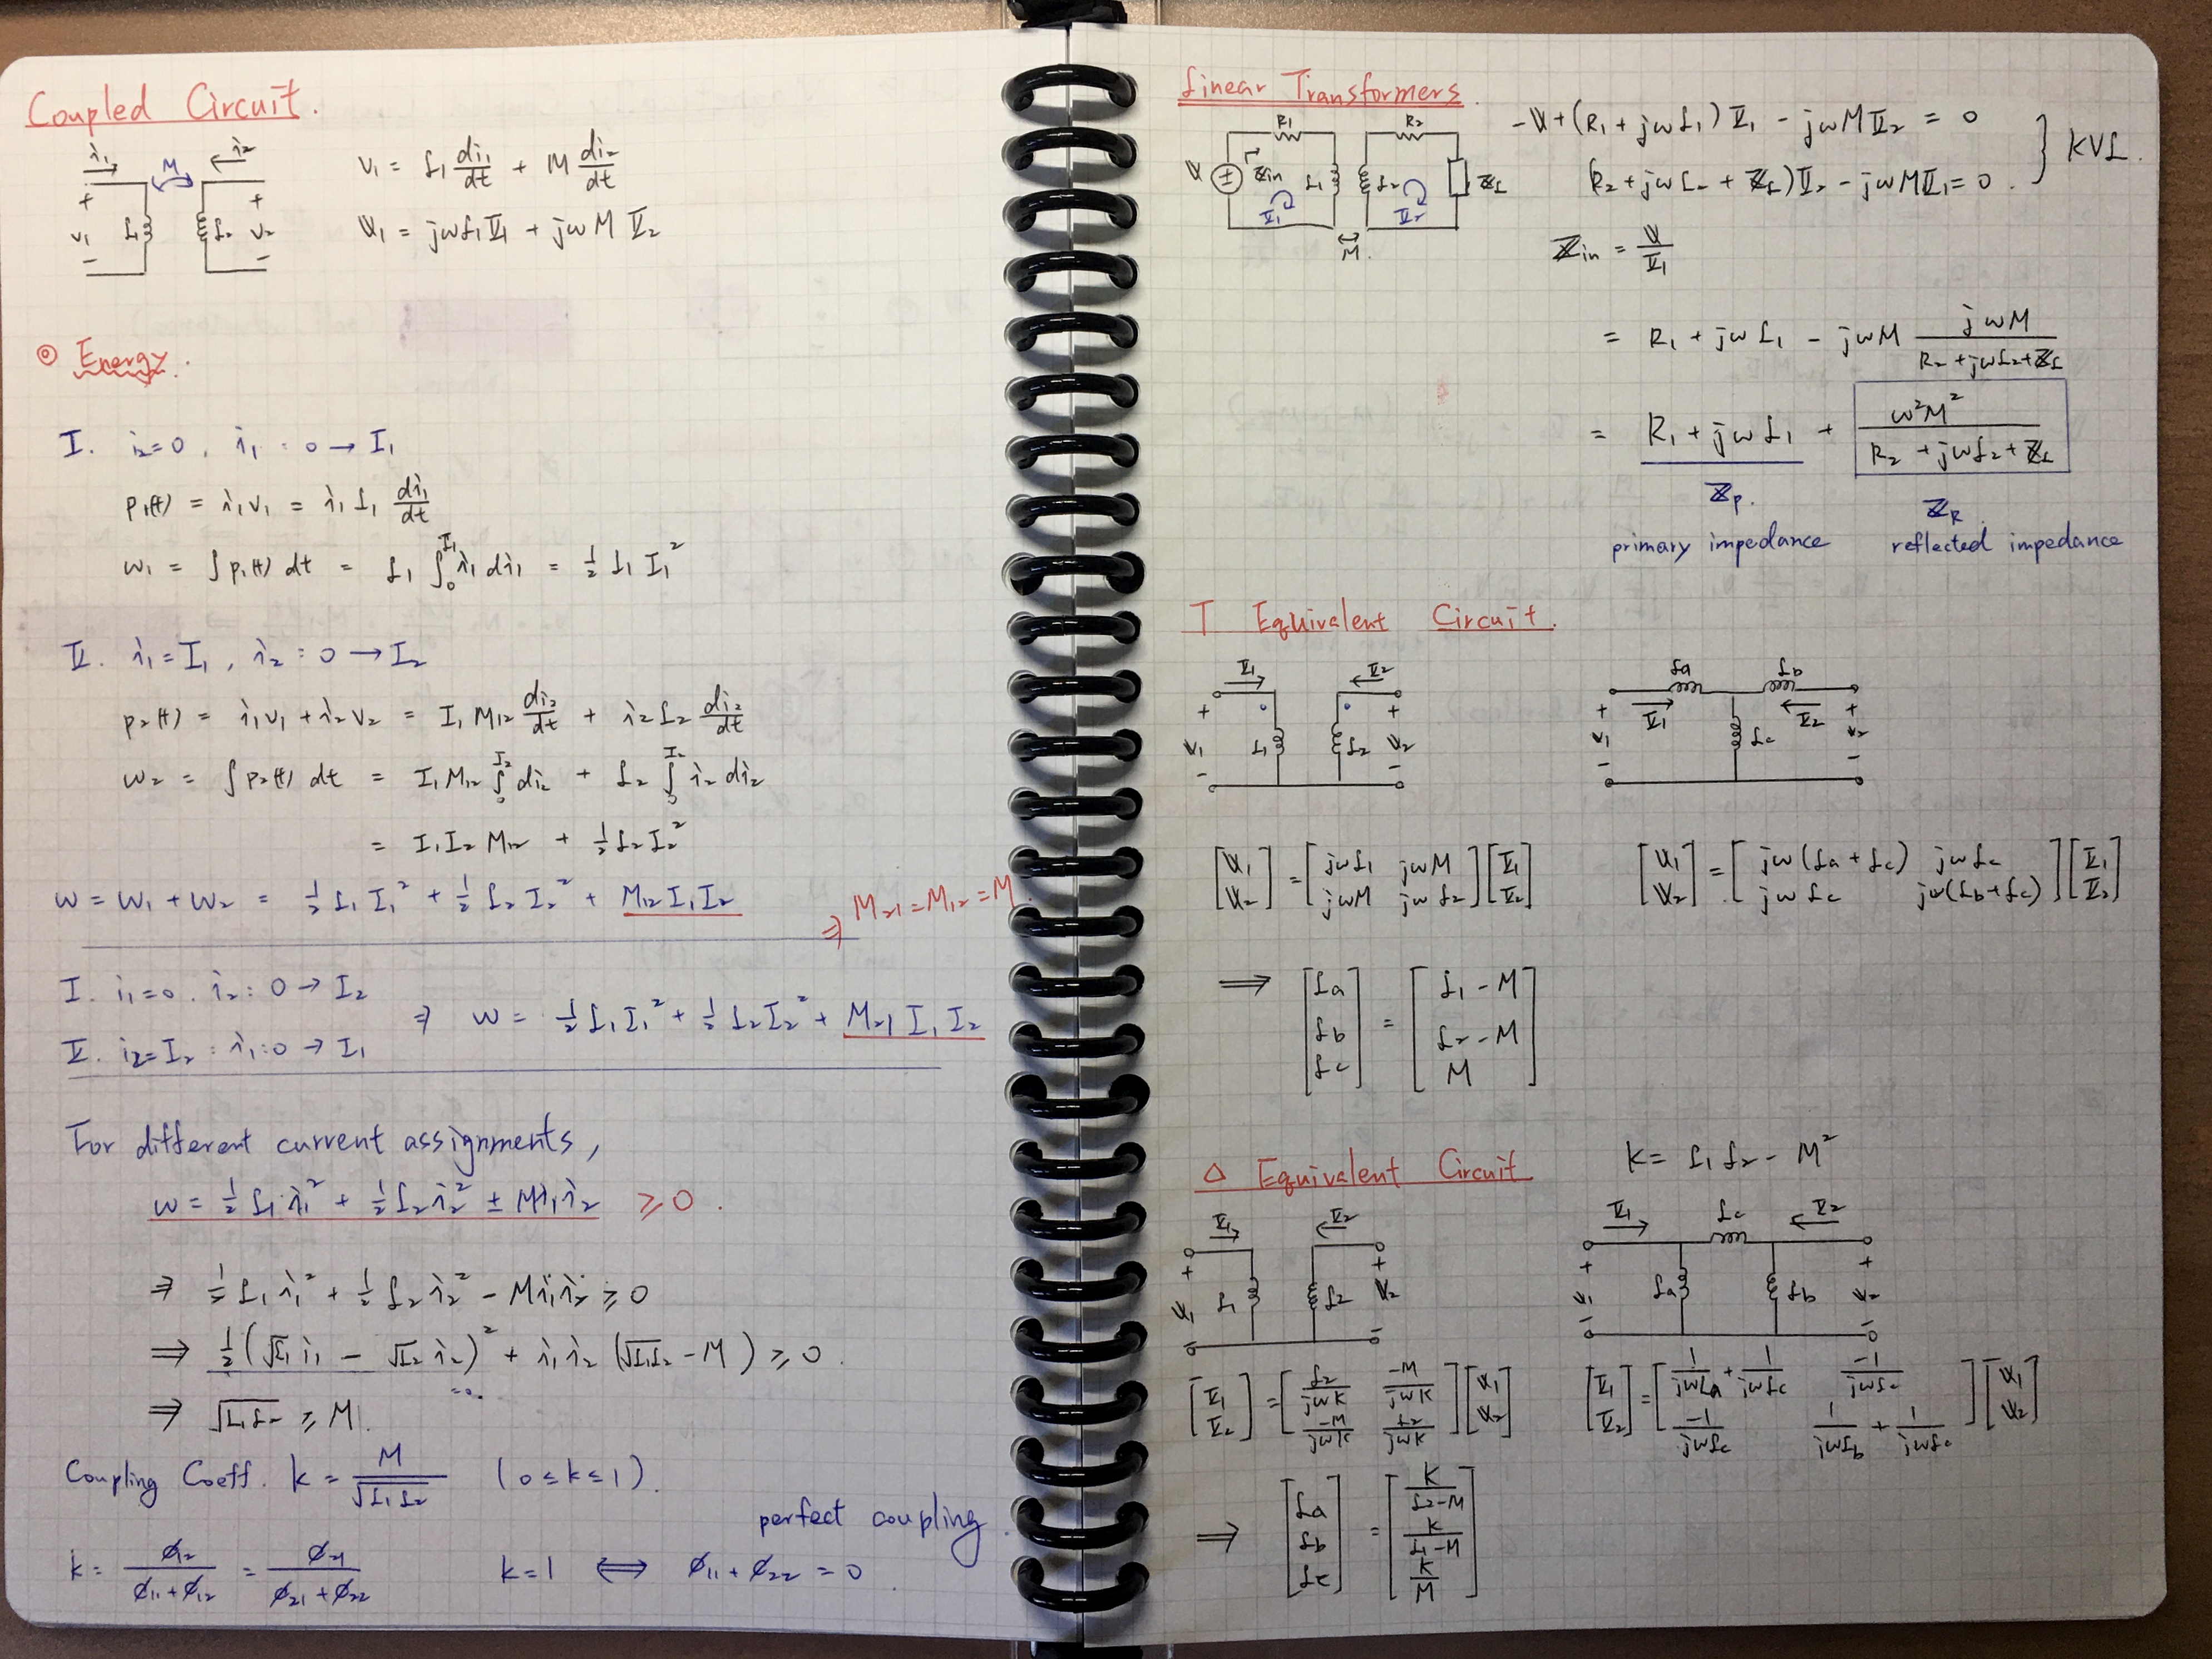 Coupled Circuit.
i₁ M i₂
+ +
v₁ L₁ L₂ v₂
− −
v₁ = L₁ di₁/dt + M di₂/dt
V₁ = jωL₁I₁ + jωM I₂
◎ Energy.
I. i₂=0, i₁ : 0 → I₁
p₁(t) = i₁v₁ = i₁ L₁ di₁/dt
w₁ = ∫p₁(t) dt = L₁ ∫₀^I₁ i₁ di₁ = ½ L₁ I₁²
II. i₁=I₁, i₂ : 0 → I₂
p₂(t) = i₁v₁ + i₂v₂ = I₁ M₁₂ di₂/dt + i₂ L₂ di₂/dt
w₂ = ∫p₂(t) dt = I₁ M₁₂ ∫₀^I₂ di₂ + L₂ ∫₀^I₂ i₂ di₂
= I₁I₂ M₁₂ + ½ L₂ I₂²
w = w₁ + w₂ = ½ L₁ I₁² + ½ L₂ I₂² + M₁₂ I₁ I₂
⇒ M₂₁ = M₁₂ = M
I. i₁=0, i₂ : 0 → I₂
II. i₂=I₂ : i₁ : 0 → I₁
⇒ w = ½ L₁I₁² + ½ L₂I₂² + M₂₁ I₁ I₂
For different current assignments,
w = ½ L₁ i₁² + ½ L₂ i₂² ± M i₁ i₂ ≥ 0.
⇒ ½ L₁ i₁² + ½ L₂ i₂² − M i₁ i₂ ≥ 0
⇒ ½ (√L₁ i₁ − √L₂ i₂)² + i₁ i₂ (√L₁L₂ − M) ≥ 0.
=0.
⇒ √L₁L₂ ≥ M.
Coupling Coeff. k = M/√L₁L₂ (0 ≤ k ≤ 1).
perfect coupling.
k = ϕ₁₂/(ϕ₁₁+ϕ₁₂) = ϕ₂₁/(ϕ₂₁+ϕ₂₂) k=1 ⟺ ϕ₁₁ + ϕ₂₂ = 0.
Linear Transformers.
R₁ R₂
V Zin L₁ L₂ ZL
I₁ I₂
M.
−V + (R₁ + jωL₁) I₁ − jωM I₂ = 0
(R₂ + jωL₂ + ZL) I₂ − jωM I₁ = 0.
} KVL.
Zin = V/I₁
= R₁ + jωL₁ − jωM jωM/(R₂ + jωL₂ + ZL)
= R₁ + jωL₁ + ω²M²/(R₂ + jωL₂ + ZL)
Zp. ZR.
primary impedance reflected impedance
T Equivalent Circuit.
I₁ I₂
+ +
V₁ L₁ L₂ V₂
− −
La Lb
+ I₁ I₂ +
V₁ Lc V₂
− −
[V₁; V₂] = [jωL₁ jωM; jωM jωL₂] [I₁; I₂]
[V₁; V₂] = [jω(La + Lc) jωLc; jωLc jω(Lb + Lc)] [I₁; I₂]
⇒ [La; Lb; Lc] = [L₁ − M; L₂ − M; M]
Δ Equivalent Circuit
K = L₁L₂ − M²
I₁ I₂
+ +
V₁ L₁ L₂ V₂
− −
I₁ Lc I₂
+ +
V₁ La Lb V₂
− −
[I₁; I₂] = [L₂/jωK −M/jωK; −M/jωK L₂/jωK] [V₁; V₂]
[I₁; I₂] = [1/jωLa + 1/jωLc −1/jωLc; −1/jωLc 1/jωLb + 1/jωLc] [V₁; V₂]
⇒ [La; Lb; Lc] = [K/(L₂−M); K/(L₁−M); K/M]